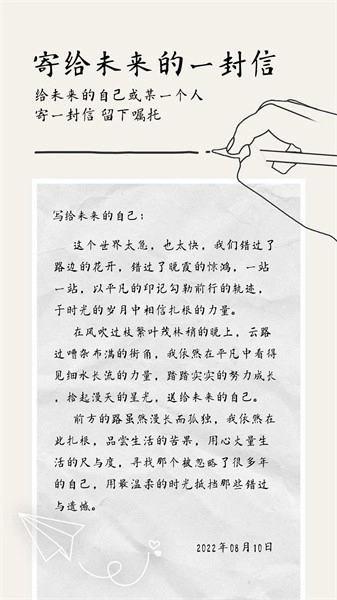 寄给未来的一封信
给未来的自己或某一个人
寄一封信 留下嘱托
写给未来的自己：
这个世界太急，也太快，我们错过了
路边的花开，错过了晚霞的惊鸿，一站
一站，以平凡的印记勾勒前行的轨迹，
于时光的岁月中相信扎根的力量。
在风吹过枝繁叶茂林梢的晚上，云路
过嘈杂布满的街角，我依然在平凡中看得
见细水长流的力量，踏踏实实的努力成长
，拾起漫天的星光，送给未来的自己。
前方的路虽然漫长而孤独，我依然在
此扎根，品尝生活的苦果，用心丈量生
活的尺与度，寻找那个被忽略了很多年
的自己，用最温柔的时光抵挡那些错过
与遗憾。
2022年08月10日